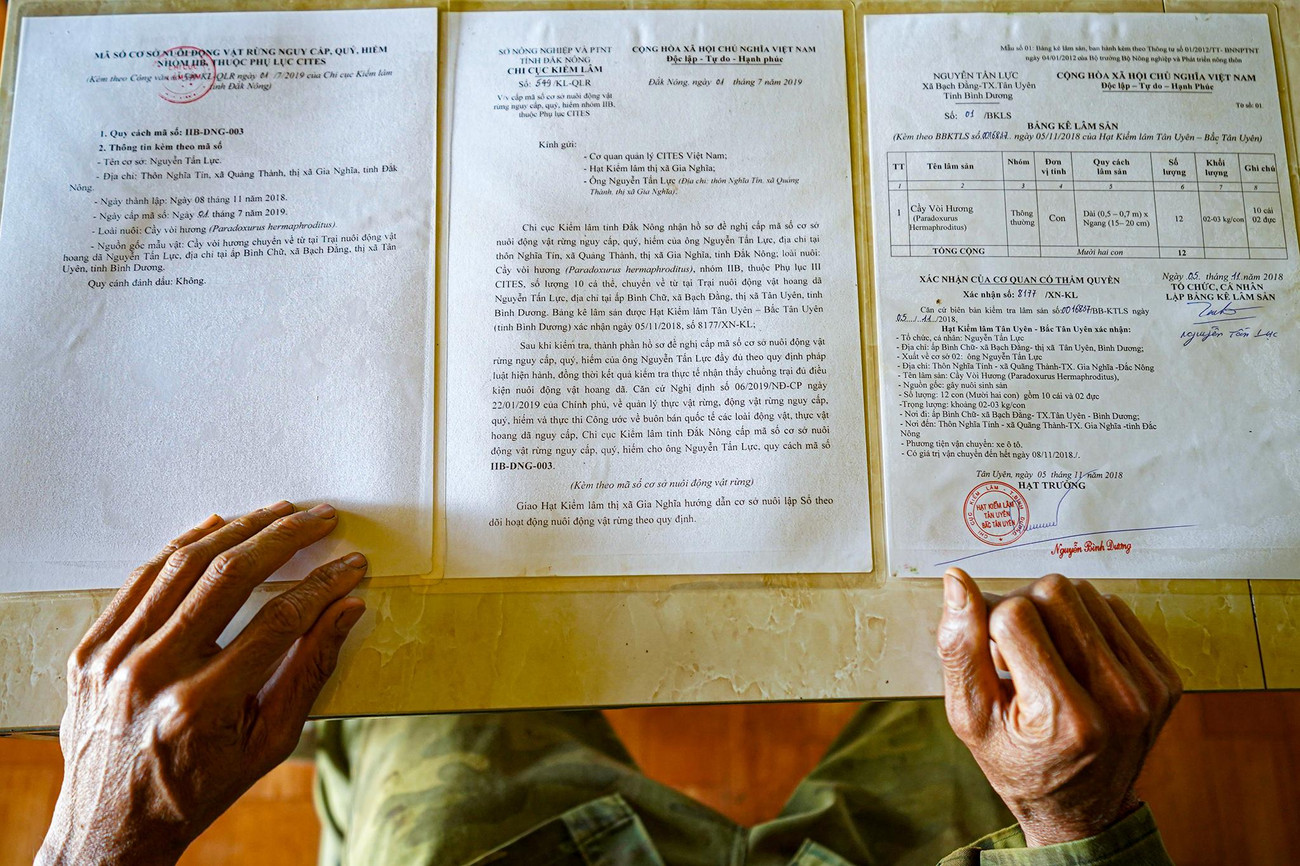 MÃ SỐ CƠ SỞ NUÔI ĐỘNG VẬT RỪNG NGUY CẤP, QUÝ, HIẾM
NHÓM IIB, THUỘC PHỤ LỤC CITES
(Kèm theo Công văn số 549/KL-QLR ngày 01 /7/2019 của Chi cục Kiểm lâm
tỉnh Đắk Nông)
1. Quy cách mã số: IIB-DNG-003
2. Thông tin kèm theo mã số
- Tên cơ sở: Nguyễn Tấn Lực.
- Địa chỉ: Thôn Nghĩa Tín, xã Quảng Thành, thị xã Gia Nghĩa, tỉnh Đắk
Nông.
- Ngày thành lập: Ngày 08 tháng 11 năm 2018.
- Ngày cấp mã số: Ngày 01 tháng 7 năm 2019.
- Loài nuôi: Cầy vòi hương (Paradoxurus hermaphroditus).
- Nguồn gốc mẫu vật: Cầy vòi hương chuyển về từ tại Trại nuôi động vật
hoang dã Nguyễn Tấn Lực, địa chỉ tại ấp Bình Chữ, xã Bạch Đằng, thị xã Tân
Uyên, tỉnh Bình Dương.
Quy cánh đánh dấu: Không.
SỞ NÔNG NGHIỆP VÀ PTNT
TỈNH ĐẮK NÔNG
CHI CỤC KIỂM LÂM
Số: 549/KL-QLR
V/v cấp mã số cơ sở nuôi động vật
rừng nguy cấp, quý, hiếm nhóm IIB,
thuộc Phụ lục CITES
CỘNG HÒA XÃ HỘI CHỦ NGHĨA VIỆT NAM
Độc lập - Tự do - Hạnh phúc
Đắk Nông, ngày 01 tháng 7 năm 2019
Kính gửi:
- Cơ quan quản lý CITES Việt Nam;
- Hạt Kiểm lâm thị xã Gia Nghĩa;
- Ông Nguyễn Tấn Lực (Địa chỉ: thôn Nghĩa Tín, xã Quảng
Thành, thị xã Gia Nghĩa).
Chi cục Kiểm lâm tỉnh Đắk Nông nhận hồ sơ đề nghị cấp mã số cơ sở
nuôi động vật rừng nguy cấp, quý, hiếm của ông Nguyễn Tấn Lực, địa chỉ tại
thôn Nghĩa Tín, xã Quảng Thành, thị xã Gia Nghĩa, tỉnh Đắk Nông; loài nuôi:
Cầy vòi hương (Paradoxurus hermaphroditus), nhóm IIB, thuộc Phụ lục III
CITES, số lượng 10 cá thể, chuyển về từ tại Trại nuôi động vật hoang dã
Nguyễn Tấn Lực, địa chỉ tại ấp Bình Chữ, xã Bạch Đằng, thị xã Tân Uyên, tỉnh Bình
Dương. Bảng kê lâm sản được Hạt Kiểm lâm Tân Uyên – Bắc Tân Uyên
(tỉnh Bình Dương) xác nhận ngày 05/11/2018, số 8177/XN-KL;
Sau khi kiểm tra, thành phần hồ sơ đề nghị cấp mã số cơ sở nuôi động vật
rừng nguy cấp, quý, hiếm của ông Nguyễn Tấn Lực đầy đủ theo quy định pháp
luật hiện hành, đồng thời kết quả kiểm tra thực tế nhận thấy chuồng trại đủ điều
kiện nuôi động vật hoang dã. Căn cứ Nghị định số 06/2019/NĐ-CP ngày
22/01/2019 của Chính phủ, về quản lý thực vật rừng, động vật rừng nguy cấp,
quý, hiếm và thực thi Công ước về buôn bán quốc tế các loài động vật, thực vật
hoang dã nguy cấp, Chi cục Kiểm lâm tỉnh Đắk Nông cấp mã số cơ sở nuôi
động vật rừng nguy cấp, quý, hiếm cho ông Nguyễn Tấn Lực, quy cách mã số
IIB-DNG-003.
(Kèm theo mã số cơ sở nuôi động vật rừng)
Giao Hạt Kiểm lâm thị xã Gia Nghĩa hướng dẫn cơ sở nuôi lập Sổ theo
dõi hoạt động nuôi động vật rừng theo quy định.
Mẫu số 01: Bảng kê lâm sản, ban hành kèm theo Thông tư số 01/2012/TT- BNNPTNT
ngày 04/01/2012 của Bộ trưởng Bộ Nông nghiệp và Phát triển nông thôn
NGUYỄN TẤN LỰC
Xã Bạch Đằng-TX.Tân Uyên
Tỉnh Bình Dương
Số: 01 /BKLS
CỘNG HÒA XÃ HỘI CHỦ NGHĨA VIỆT NAM
Độc lập – Tự do – Hạnh Phúc
Tờ số: 01.
BẢNG KÊ LÂM SẢN
(Kèm theo BBKTLS số.0016807. ngày 05/11/2018 của Hạt Kiểm Lâm Tân Uyên – Bắc Tân Uyên)
TT Tên lâm sản Nhóm Đơn vị tính Quy cách lâm sản Số lượng Khối lượng Ghi chú
1 2 3 4 5 6 7 8
1 Cầy Vòi Hương (Paradoxurus Hermaphroditus) Thông thường Con Dài (0,5 – 0,7 m) x Ngang (15– 20 cm) 12 02-03 kg/con 10 cái 02 đực
TỔNG CỘNG Mười hai con 12
XÁC NHẬN CỦA CƠ QUAN CÓ THẨM QUYỀN
Xác nhận số: 8177 /XN-KL
Ngày 05. tháng 11.năm 2018
TỔ CHỨC, CÁ NHÂN
LẬP BẢNG KÊ LÂM SẢN
Nguyễn Tấn Lực
Căn cứ biên bản kiểm tra lâm sản số:0016807/BB-KTLS ngày
05 / 11 /2018,
Hạt Kiểm lâm Tân Uyên - Bắc Tân Uyên xác nhận:
- Tổ chức, cá nhân: Nguyễn Tấn Lực
- Địa chỉ: ấp Bình Chữ- xã Bạch Đằng- thị xã Tân Uyên, Bình Dương;
- Xuất về cơ sở 02: ông Nguyễn Tấn Lực
- Địa chỉ: Thôn Nghĩa Tính - xã Quãng Thành-TX. Gia Nghĩa -Đắc Nông
- Tên lâm sản: Cầy Vòi Hương (Paradoxurus Hermaphroditus),
- Nguồn gốc: gây nuôi sinh sản
- Số lượng: 12 con (Mười hai con) gồm 10 cái và 02 đực
-Trọng lượng: khoảng 02-03 kg/con
- Nơi đi: ấp Bình Chữ- xã Bạch Đằng- TX.Tân Uyên - Bình Dương;
- Nơi đến: Thôn Nghĩa Tính - xã Quãng Thành-TX. Gia Nghĩa -tỉnh Đắc
Nông
- Phương tiện vận chuyển: xe ô tô.
- Có giá trị vận chuyển đến hết ngày 08/11/2018./.
Tân Uyên, ngày 05 tháng 11 năm 2018
HẠT TRƯỞNG
HẠT KIỂM LÂM
TÂN UYÊN
BẮC TÂN UYÊN
Nguyễn Bình Dương